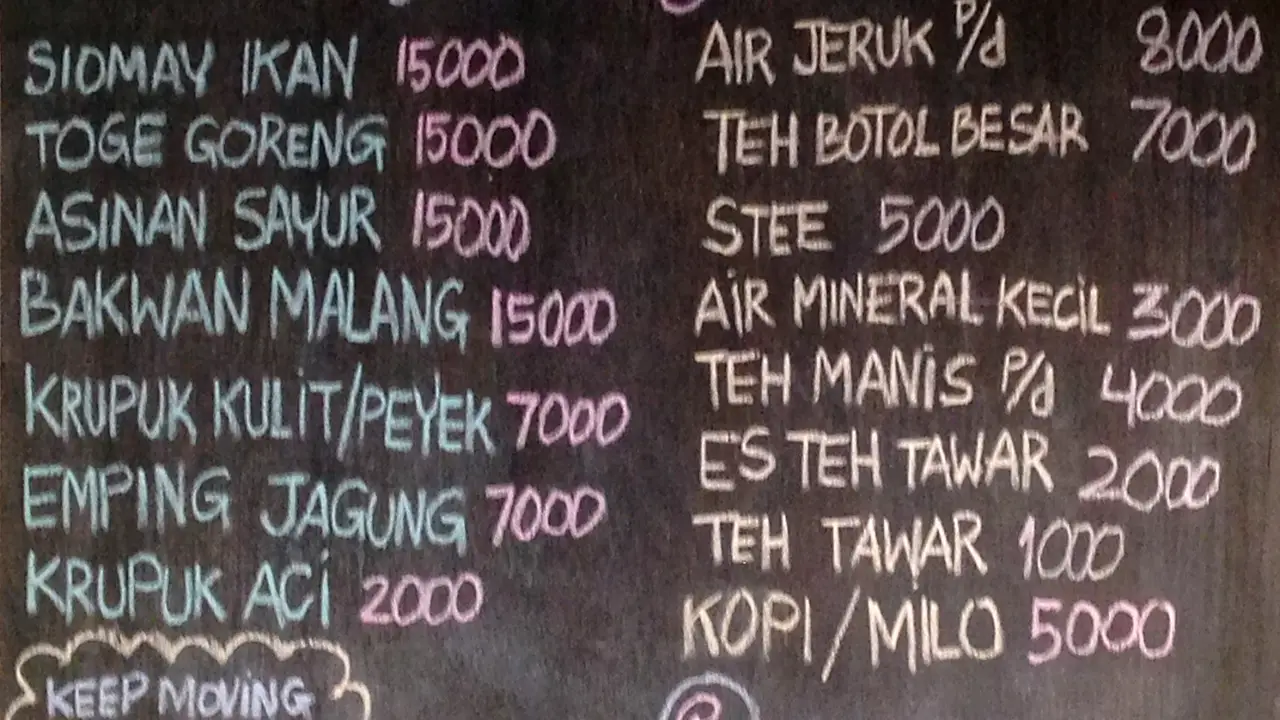 SIOMAY IKAN 15000
TOGE GORENG 15000
ASINAN SAYUR 15000
BAKWAN MALANG 15000
KRUPUK KULIT/PEYEK 7000
EMPING JAGUNG 7000
KRUPUK ACI 2000
KEEP MOVING
AIR JERUK P/d 8000
TEH BOTOL BESAR 7000
STEE 5000
AIR MINERAL KECIL 3000
TEH MANIS P/d 4000
ES TEH TAWAR 2000
TEH TAWAR 1000
KOPI/MILO 5000